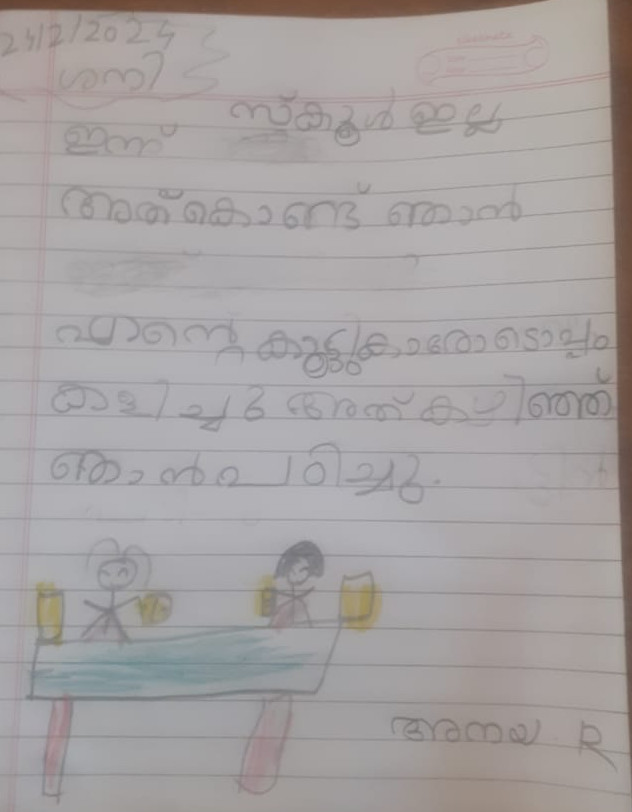 24/2/2024
ശനി
ഇന്ന് സ്കൂൾ ഇല്ല
അത്കൊണ്ട് ഞാൻ
എന്റെ കൂട്ടുകാരോടൊപ്പം
കളിച്ചു അത് കഴിഞ്ഞ്
ഞാൻ പഠിച്ചു.
അനയ R